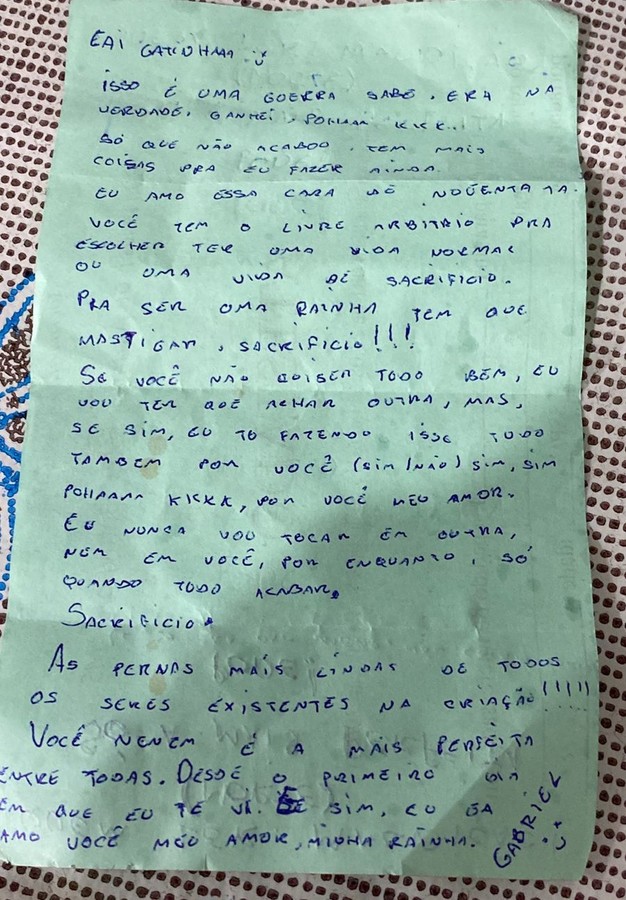 EAI GATINHAAA :)
ISSO É UMA GUERRA SABE. ERA NA
VERDADE. GANHEI, POHAAA KKK...
SÓ QUE NÃO ACABOU. TEM MAIS
COISAS PRA EU FAZER AINDA.
EU AMO ESSA CARA DE NOJENTA
VOCÊ TEM O LIVRE ARBITRIO PRA
ESCOLHER TER UMA VIDA NORMAL
OU UMA VIDA DE SACRIFICIO.
PRA SER UMA RAINHA TEM QUE
MASTIGAR, SACRIFICIO!!!
SE VOCÊ NÃO QUISER TUDO BEM, EU
VOU TER QUE ACHAR OUTRA, MAS,
SE SIM, EU TO FAZENDO ISSE TUDO
TAMBEM POR VOCÊ (SIM/NÃO) SIM, SIM
POHAAAA KKKK, POR VOCÊ MEU AMOR.
EU NUNCA VOU TOCAR EM OUTRA,
NEM EM VOCÊ, POR ENQUANTO, SÓ
QUANDO TUDO ACABAR.
SACRIFICIO.
AS PERNAS MAIS LINDAS DE TODOS
OS SERES EXISTENTES NA CRIAÇÃO!!!!!
VOCÊ NENEM É A MAIS PERFEITA
ENTRE TODAS. DESDE O PRIMEIRO DIA
EM QUE EU TE VI. E SIM, EU JÁ
AMO VOCÊ MEU AMOR, MINHA RAINHA.
GABRIEL :)